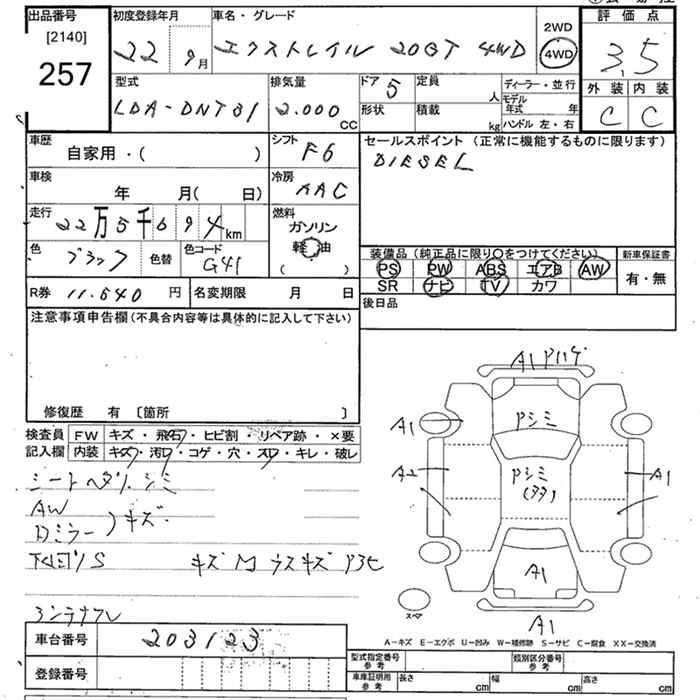 出品番号 初度登録年月 車名・グレード 2WD 評価点
[2140] 22年 9月 エクストレイル 20GT 4WD 4WD 3.5
257
型式 排気量 ドア 5 定員 人 ディーラー・並行 外装 内装
LDA-DNT31 2.000 CC 形状 積載 kg モデル年式 年 C C
ハンドル 左・右
車歴 シフト F6 セールスポイント (正常に機能するものに限ります)
自家用・( ) DIESEL
車検 冷房
年 月( 日) AAC
走行 燃料
22万5千694km ガソリン
色 ブラック 色替 色コード G41 軽油
( )
装備品 (純正品に限り○をつけてください) 新車保証書
PS PW ABS エアB AW 有・無
SR ナビ TV カワ
R券 11.540 円 名変期限 月 日
後日品
注意事項申告欄 (不具合内容等は具体的に記入して下さい)
修復歴 有 [箇所 ]
検査員 FW キズ・飛石・ヒビ割・リペア跡・×要
記入欄 内装 キズ・汚れ・コゲ・穴・スレ・キレ・破レ
シートヘタリ シミ
AW
Dミラー)キズ
下回りS キズ M ウスキズ
コンテナフレ
A1
A1 Pシミ
A2 Pシミ A1
A1
スペア A1
A-キズ E-エクボ U-凹み W-補修跡 S-サビ C-腐食 XX-交換済
車台番号 203123
登録番号
型式指定番号 参考 類別区分番号 参考
車庫証明用 参考 長さ cm 幅 cm 高さ cm